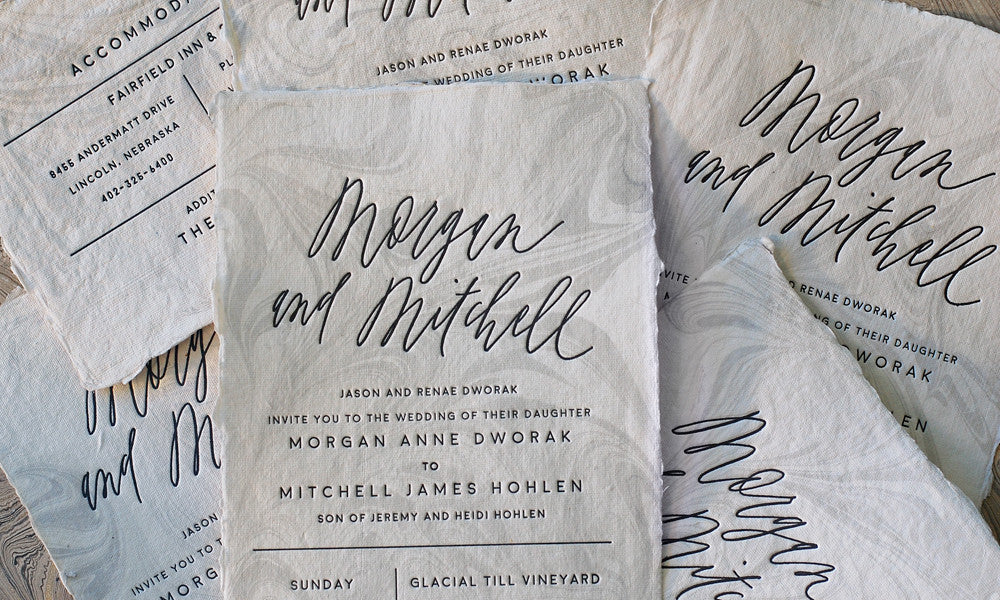 ACCOMMOD
FAIRFIELD INN &
8455 ANDERMATT DRIVE
LINCOLN, NEBRASKA
402-325-6400
ADDIT
THE
JASON AND RENAE DWORAK
THE WEDDING OF THEIR DAUGHTER
DWORAK
Morgan
and Mitchell
JASON AND RENAE DWORAK
INVITE YOU TO THE WEDDING OF THEIR DAUGHTER
MORGAN ANNE DWORAK
TO
MITCHELL JAMES HOHLEN
SON OF JEREMY AND HEIDI HOHLEN
SUNDAY
GLACIAL TILL VINEYARD
Morgan
and Mitchell
AND RENAE DWORAK
OF THEIR DAUGHTER
DWORAK
HOHLEN
Morg
and M
JASON
INVITE YOU TO T
MORG
Morgan
Mitchell